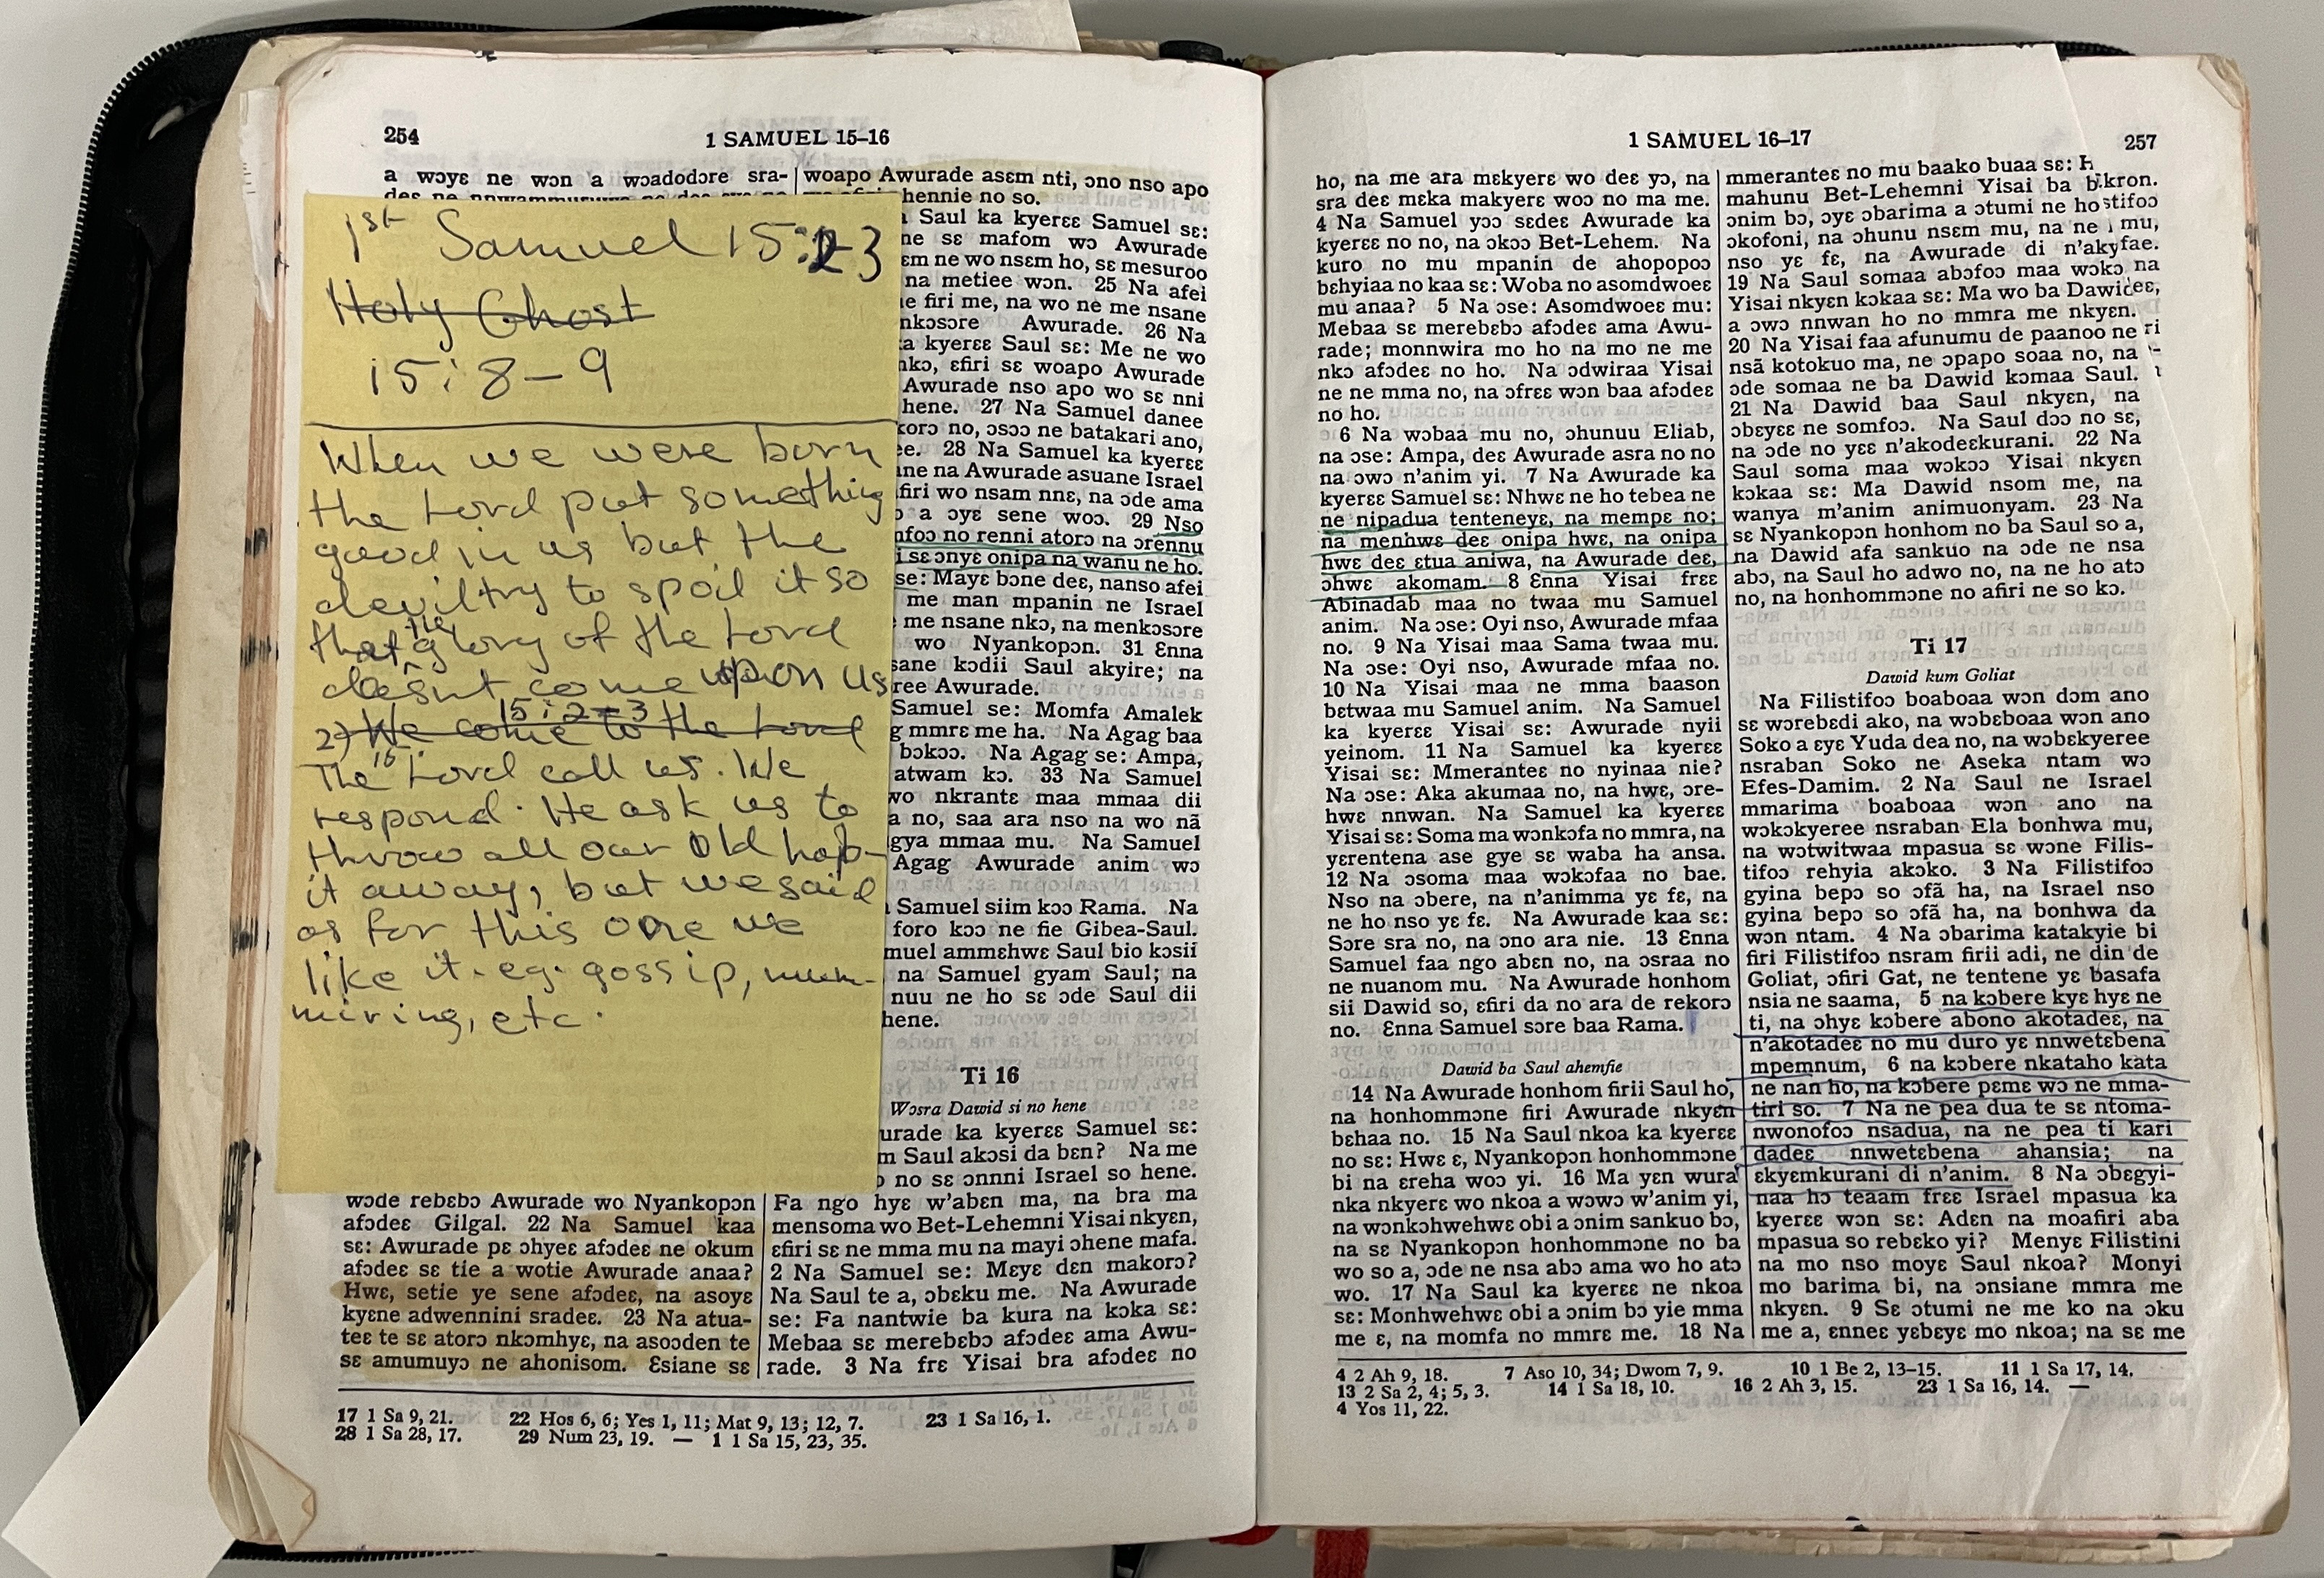 254
1 SAMUEL 15-16
a wɔyɛ ne wɔn a wɔadodɔre sra-
1st Samuel 15:23
Holy Ghost
15:8-9
When we were born
the Lord put something
good in us but the
devil try to spoil it so
that the glory of the Lord
doesnt come upon us
15:2-3
2) We come to the Lord
The Lord call us. We
respond. He ask us to
throw all our old hab-
it away, but we said
as for this one we
like it. eg. gossip, mum-
muring, etc.
wɔde rebɛbɔ Awurade wo Nyankopɔn
afɔdeɛ Gilgal. 22 Na Samuel kaa
sɛ: Awurade pɛ ɔhyeɛ afɔdeɛ ne okum
afɔdeɛ sɛ tie a wotie Awurade anaa?
Hwɛ, setie ye sene afɔdeɛ, na asoyɛ
kyɛne adwennini sradeɛ. 23 Na atua-
teɛ te sɛ atorɔ nkɔmhyɛ, na asoɔden te
sɛ amumuyɔ ne ahonisom. Ɛsiane sɛ
woapo Awurade asɛm nti, ɔno nso apo
hennie no so.
Saul ka kyerɛɛ Samuel sɛ:
ne sɛ mafom wɔ Awurade
ɛm ne wo nsɛm ho, sɛ mesuroo
na metiee wɔn. 25 Na afei
e firi me, na wo ne me nsane
nkɔsɔre Awurade. 26 Na
a kyerɛɛ Saul sɛ: Me ne wo
nkɔ, ɛfiri sɛ woapo Awurade
Awurade nso apo wo sɛ nni
hene. 27 Na Samuel danee
korɔ no, ɔsɔɔ ne batakari ano,
ee. 28 Na Samuel ka kyerɛɛ
ne na Awurade asuane Israel
firi wo nsam nnɛ, na ɔde ama
a ɔyɛ sene woɔ. 29 Nso
nfoɔ no renni atorɔ na ɔrennu
i sɛ ɔnyɛ onipa na wanu ne ho.
se: Mayɛ bɔne deɛ, nanso afei
me man mpanin ne Israel
me nsane nkɔ, na menkɔsɔre
wo Nyankopɔn. 31 Ɛnna
sane kɔdii Saul akyire; na
ree Awurade.
Samuel se: Momfa Amalek
g mmrɛ me ha. Na Agag baa
bɔkɔɔ. Na Agag se: Ampa,
atwam kɔ. 33 Na Samuel
wo nkrantɛ maa mmaa dii
a no, saa ara nso na wo nã
gya mmaa mu. Na Samuel
Agag Awurade anim wɔ
Samuel siim kɔɔ Rama. Na
foro kɔɔ ne fie Gibea-Saul.
muel ammɛhwɛ Saul bio kɔsii
na Samuel gyam Saul; na
nuu ne ho sɛ ɔde Saul dii
hene.
Ti 16
Wɔsra Dawid si no hene
urade ka kyerɛɛ Samuel sɛ:
m Saul akɔsi da bɛn? Na me
no sɛ ɔnnni Israel so hene.
Fa ngo hyɛ w'abɛn ma, na bra ma
mensoma wo Bet-Lehemni Yisai nkyɛn,
ɛfiri sɛ ne mma mu na mayi ɔhene mafa.
2 Na Samuel se: Mɛyɛ dɛn makorɔ?
Na Saul te a, ɔbɛku me. Na Awurade
se: Fa nantwie ba kura na kɔka sɛ:
Mebaa sɛ merebɛbɔ afɔdeɛ ama Awu-
rade. 3 Na frɛ Yisai bra afɔdeɛ no
17 1 Sa 9, 21. 22 Hos 6, 6; Yes 1, 11; Mat 9, 13; 12, 7. 23 1 Sa 16, 1.
28 1 Sa 28, 17. 29 Num 23, 19. — 1 1 Sa 15, 23, 35.
1 SAMUEL 16-17
257
ho, na me ara mɛkyerɛ wo deɛ yɔ, na
sra deɛ mɛka makyerɛ woɔ no ma me.
4 Na Samuel yɔɔ sɛdeɛ Awurade ka
kyerɛɛ no no, na ɔkɔɔ Bet-Lehem. Na
kuro no mu mpanin de ahopopoɔ
bɛhyiaa no kaa sɛ: Woba no asomdwoeɛ
mu anaa? 5 Na ɔse: Asomdwoeɛ mu:
Mebaa sɛ merebɛbɔ afɔdeɛ ama Awu-
rade; monnwira mo ho na mo ne me
nkɔ afɔdeɛ no ho. Na ɔdwiraa Yisai
ne ne mma no, na ɔfrɛɛ wɔn baa afɔdeɛ
no ho.
6 Na wɔbaa mu no, ɔhunuu Eliab,
na ɔse: Ampa, deɛ Awurade asra no no
na ɔwɔ n'anim yi. 7 Na Awurade ka
kyerɛɛ Samuel sɛ: Nhwɛ ne ho tebea ne
ne nipadua tenteneyɛ, na mempɛ no;
na menhwɛ deɛ onipa hwɛ, na onipa
hwɛ deɛ ɛtua aniwa, na Awurade deɛ,
ɔhwɛ akomam. 8 Ɛnna Yisai frɛɛ
Abinadab maa no twaa mu Samuel
anim. Na ɔse: Oyi nso, Awurade mfaa
no. 9 Na Yisai maa Sama twaa mu.
Na ɔse: Oyi nso, Awurade mfaa no.
10 Na Yisai maa ne mma baason
bɛtwaa mu Samuel anim. Na Samuel
ka kyerɛɛ Yisai sɛ: Awurade nyii
yeinom. 11 Na Samuel ka kyerɛɛ
Yisai sɛ: Mmeranteɛ no nyinaa nie?
Na ɔse: Aka akumaa no, na hwɛ, ɔre-
hwɛ nnwan. Na Samuel ka kyerɛɛ
Yisai sɛ: Soma ma wɔnkɔfa no mmra, na
yɛrentena ase gye sɛ waba ha ansa.
12 Na ɔsoma maa wɔkɔfaa no bae.
Nso na ɔbere, na n'animma yɛ fɛ, na
ne ho nso yɛ fɛ. Na Awurade kaa sɛ:
Sɔre sra no, na ɔno ara nie. 13 Ɛnna
Samuel faa ngo abɛn no, na ɔsraa no
ne nuanom mu. Na Awurade honhom
sii Dawid so, ɛfiri da no ara de rekorɔ
no. Ɛnna Samuel sɔre baa Rama.
Dawid ba Saul ahemfie
14 Na Awurade honhom firii Saul ho,
na honhommɔne firi Awurade nkyɛn
bɛhaa no. 15 Na Saul nkoa ka kyerɛɛ
no sɛ: Hwɛ ɛ, Nyankopɔn honhommɔne
bi na ɛreha woɔ yi. 16 Ma yɛn wura
nka nkyerɛ wo nkoa a wɔwɔ w'anim yi,
na wɔnkɔhwehwɛ obi a ɔnim sankuo bɔ,
na sɛ Nyankopɔn honhommɔne no ba
wo so a, ɔde ne nsa abɔ ama wo ho atɔ
wo. 17 Na Saul ka kyerɛɛ ne nkoa
sɛ: Monhwehwɛ obi a ɔnim bɔ yie mma
me ɛ, na momfa no mmrɛ me. 18 Na
mmeranteɛ no mu baako buaa sɛ:
mahunu Bet-Lehemni Yisai ba
ɔnim bɔ, ɔyɛ ɔbarima a ɔtumi ne
ɔkofoni, na ɔhunu nsɛm mu, na ne
nso yɛ fɛ, na Awurade di n'aky
19 Na Saul somaa abɔfoɔ maa wɔkɔ
Yisai nkyɛn kɔkaa sɛ: Ma wo ba Dawid
a ɔwɔ nnwan ho no mmra me nkyɛn.
20 Na Yisai faa afunumu de paanoo ne
nsã kotokuo ma, ne ɔpapo soaa no, na
ɔde somaa ne ba Dawid kɔmaa Saul.
21 Na Dawid baa Saul nkyɛn, na
ɔbɛyɛɛ ne somfoɔ. Na Saul dɔɔ no sɛ,
na ɔde no yɛɛ n'akodeɛkurani. 22 Na
Saul soma maa wɔkɔɔ Yisai nkyɛn
kɔkaa sɛ: Ma Dawid nsom me, na
wanya m'anim animuonyam. 23 Na
sɛ Nyankopɔn honhom no ba Saul so a,
na Dawid afa sankuo na ɔde ne nsa
abɔ, na Saul ho adwo no, na ne ho atɔ
no, na honhommɔne no afiri ne so kɔ.
Ti 17
Dawid kum Goliat
Na Filistifoɔ boaboaa wɔn dɔm ano
sɛ wɔrebɛdi ako, na wɔbɛboaa wɔn ano
Soko a ɛyɛ Yuda dea no, na wɔbɛkyeree
nsraban Soko ne Aseka ntam wɔ
Efes-Damim. 2 Na Saul ne Israel
mmarima boaboaa wɔn ano na
wɔkɔkyeree nsraban Ela bonhwa mu,
na wɔtwitwaa mpasua sɛ wɔne Filis-
tifoɔ rehyia akoko. 3 Na Filistifoɔ
gyina bepɔ so ɔfã ha, na Israel nso
gyina bepɔ so ɔfã ha, na bonhwa da
wɔn ntam. 4 Na ɔbarima katakyie bi
firi Filistifoɔ nsram firii adi, ne din de
Goliat, ɔfiri Gat, ne tentene yɛ basafa
nsia ne saama, 5 na kɔbere kyɛ hyɛ ne
ti, na ɔhyɛ kɔbere abono akotadeɛ, na
n'akotadeɛ no mu duro yɛ nnwetɛbena
mpemnum, 6 na kɔbere nkataho kata
ne nan ho, na kɔbere pɛmɛ wɔ ne mma-
tiri so. 7 Na ne pea dua te sɛ ntoma-
nwonofoɔ nsadua, na ne pea ti kari
dadeɛ nnwetɛbena ahansia; na
ɛkyɛmkurani di n'anim. 8 Na ɔbɛgyi-
naa hɔ teaam frɛɛ Israel mpasua ka
kyerɛɛ wɔn sɛ: Adɛn na moafiri aba
mpasua so rebɛko yi? Menyɛ Filistini
na mo nso moyɛ Saul nkoa? Monyi
mo barima bi, na ɔnsiane mmra me
nkyɛn. 9 Sɛ ɔtumi ne me ko na ɔku
me a, ɛnneɛ yɛbɛyɛ mo nkoa; na sɛ me
4 2 Ah 9, 18. 7 Aso 10, 34; Dwom 7, 9. 10 1 Be 2, 13-15. 11 1 Sa 17, 14.
13 2 Sa 2, 4; 5, 3. 14 1 Sa 18, 10. 16 2 Ah 3, 15. 23 1 Sa 16, 14. —
4 Yos 11, 22.